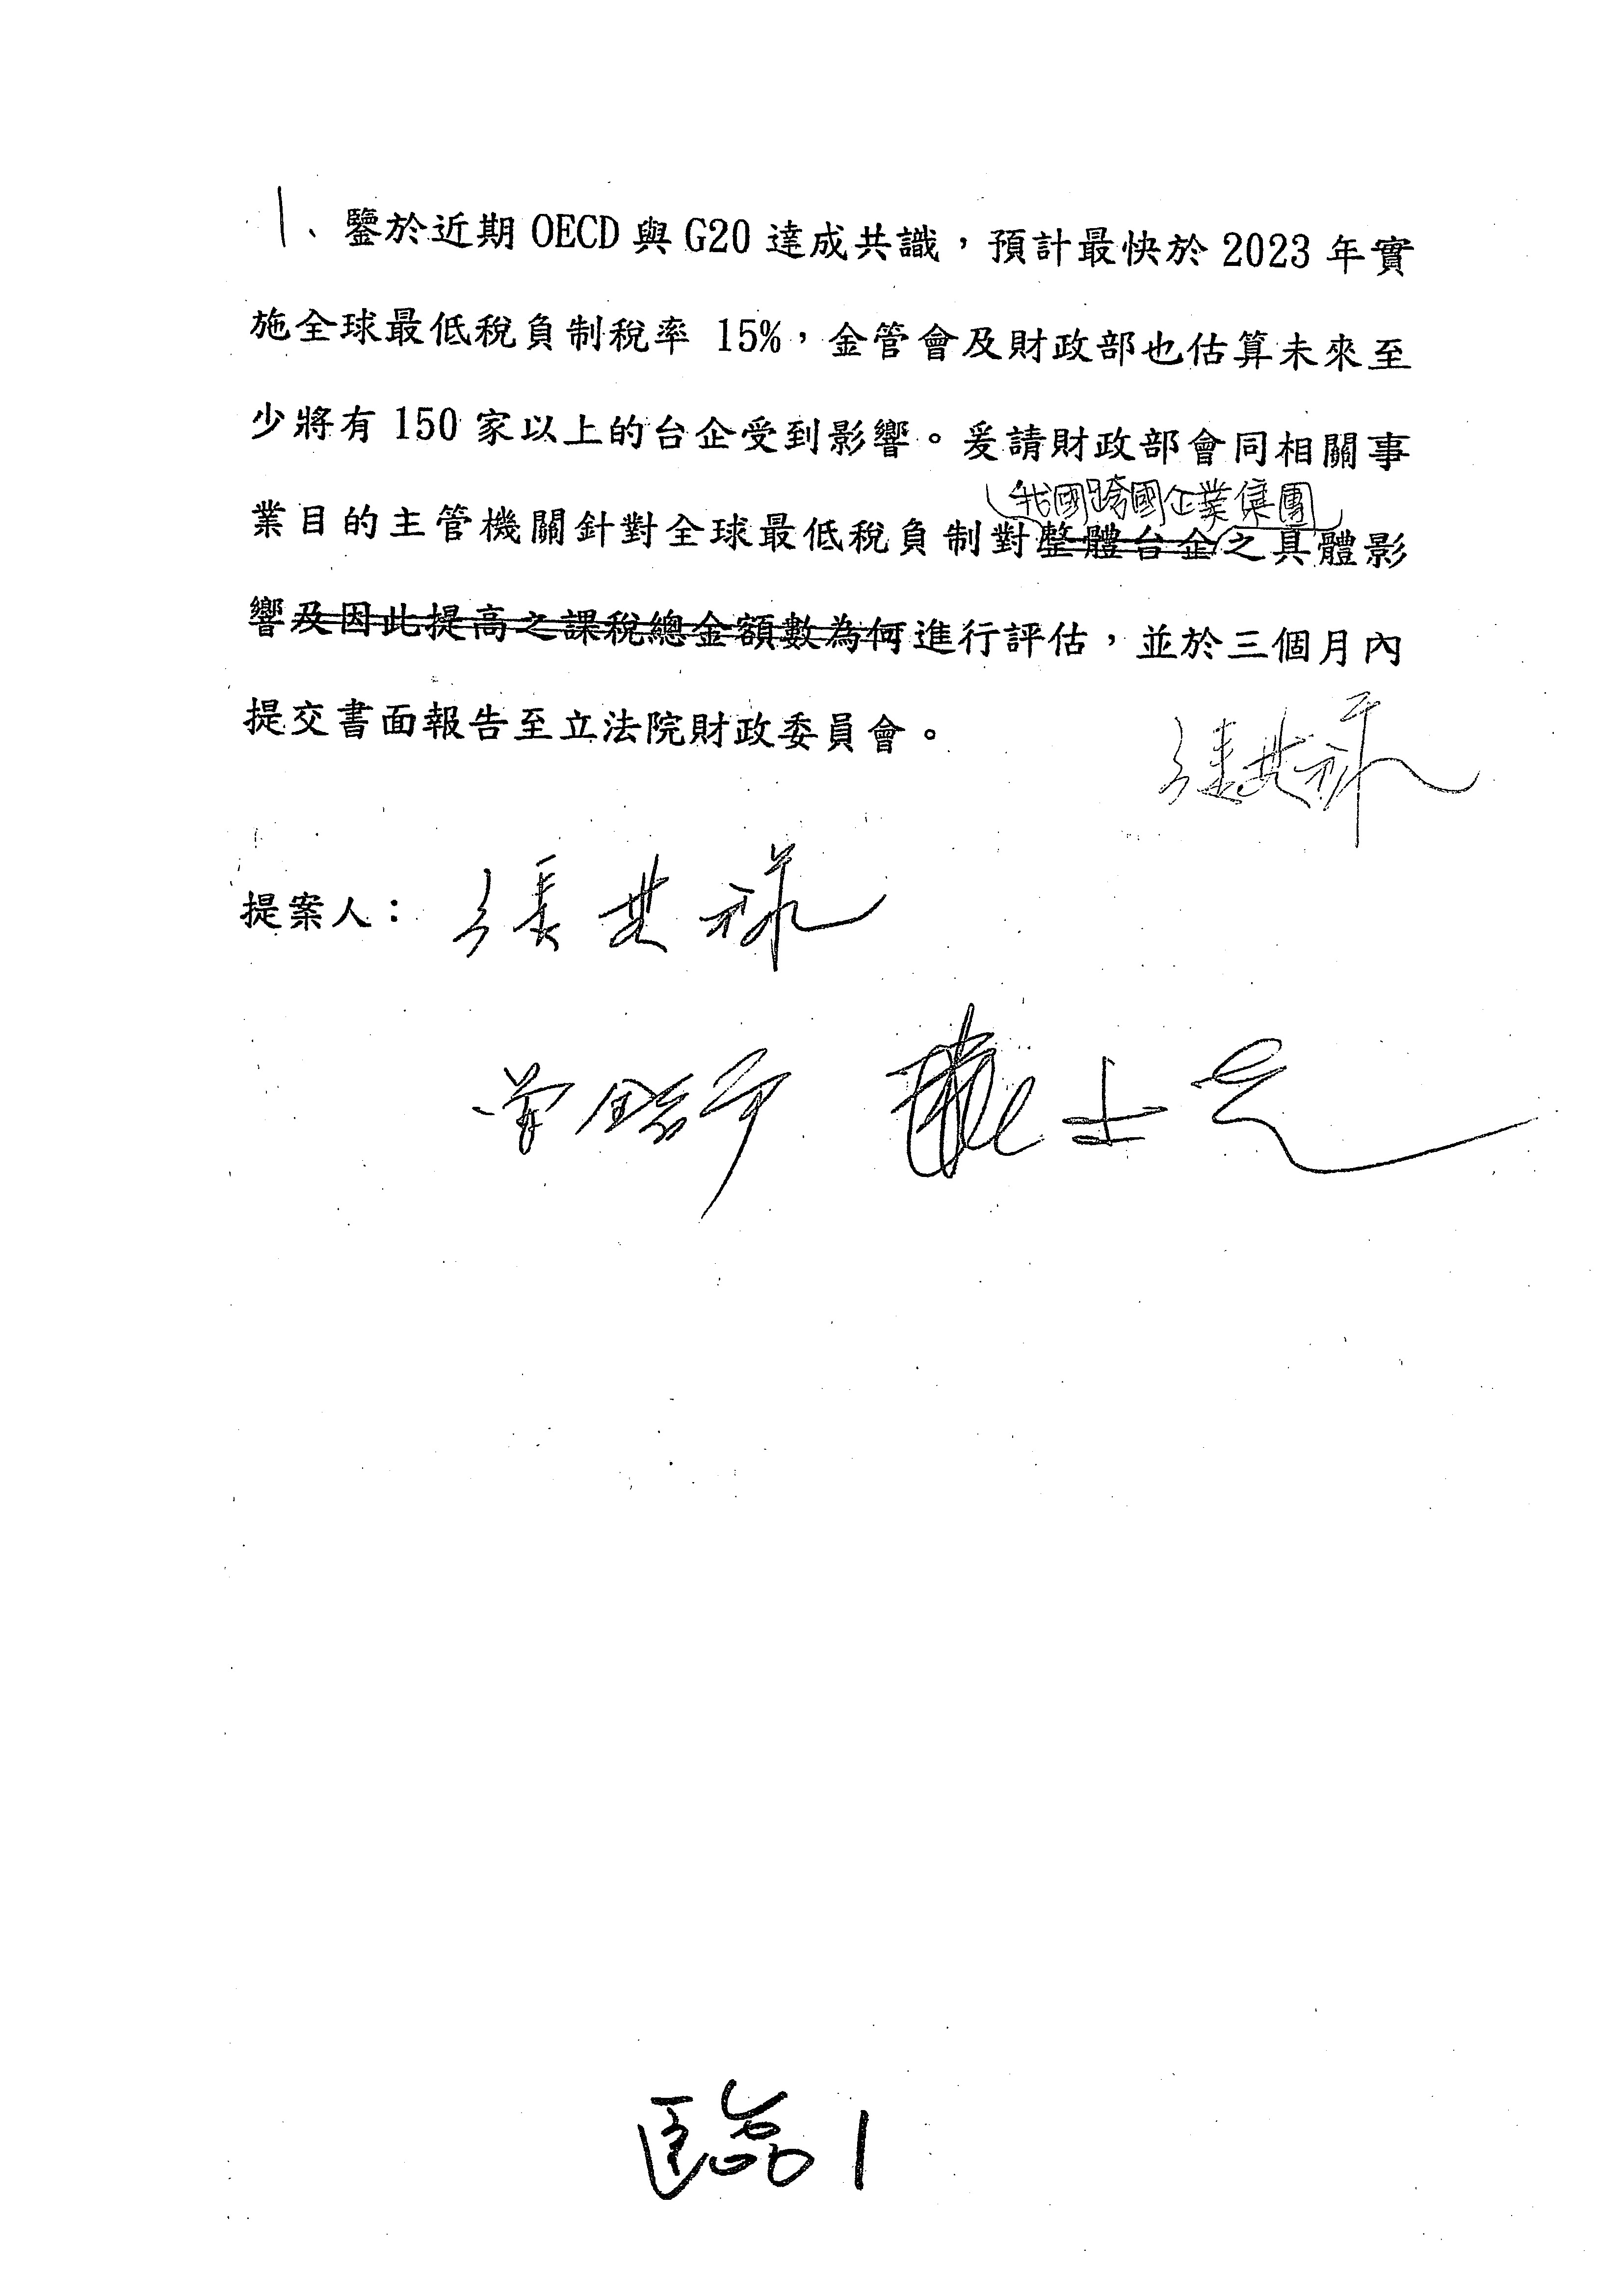 1、鑒於近期 OECD 與 G20 達成共識，預計最快於 2023 年實
施全球最低稅負制稅率 15%，金管會及財政部也估算未來至
少將有 150 家以上的台企受到影響。爰請財政部會同相關事
我國跨國企業集團
業目的主管機關針對全球最低稅負制對整體台企之具體影
響及因此提高之課稅總金額數為何進行評估，並於三個月內
提交書面報告至立法院財政委員會。
提案人：
臨 1